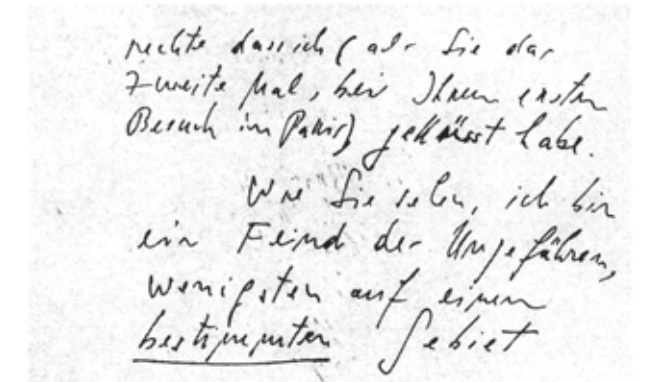 rechte dass ich (als Sie das
zweite Mal, bei Ihrem ersten
Besuch in Paris) geküsst habe.
Wie Sie sehen, ich bin
ein Feind des Ungefähren,
wenigsten auf einem
bestimmten Gebiet